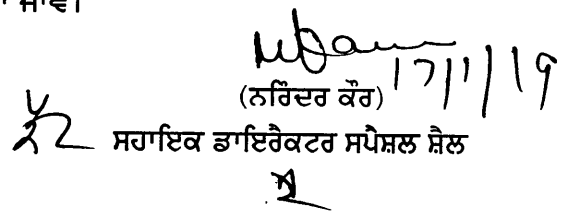 ਜਾਵੇ।
17/1/19
(ਨਰਿੰਦਰ ਕੌਰ)
ਸਹਾਇਕ ਡਾਇਰੈਕਟਰ ਸਪੈਸ਼ਲ ਸ਼ੈਲ